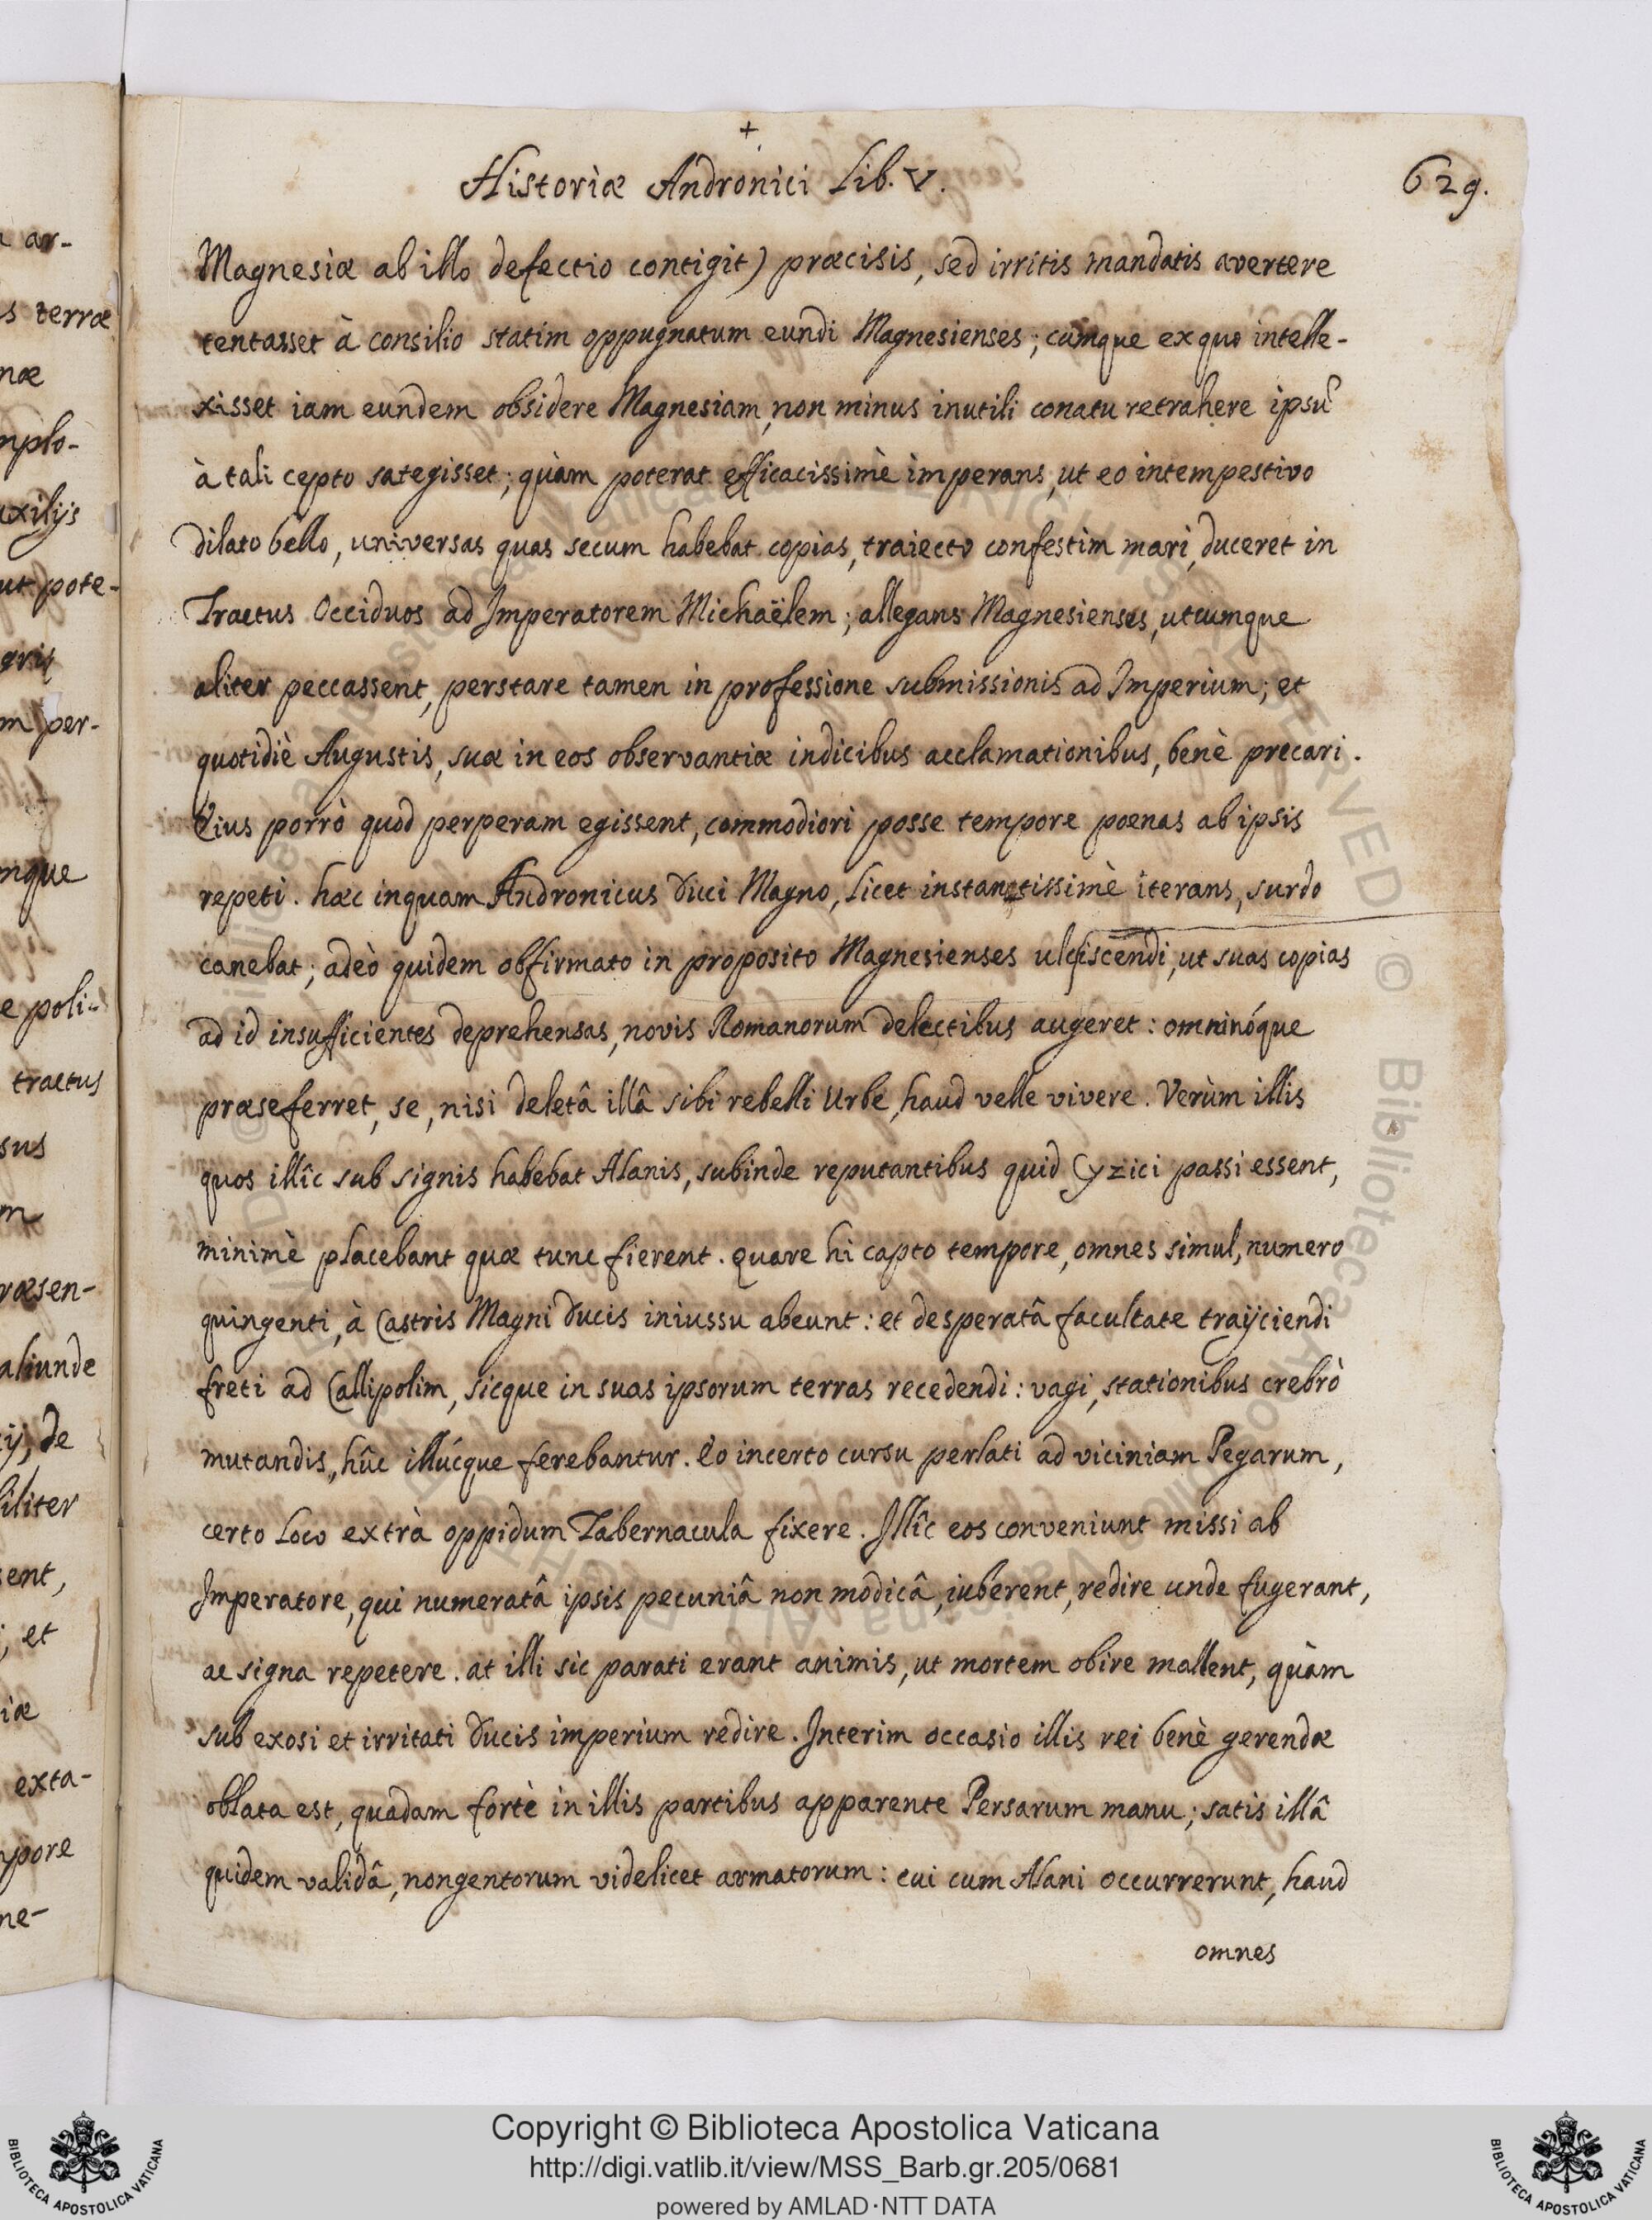 +
Historiæ Andronici Lib. V.
629.
Magnesiæ ab illo defectio contigit) præcisis, sed irritis mandatis avertere
tentasset à consilio statim oppugnatum eundi Magnesienses; cùmque ex quo intelle-
xisset iam eundem obsidere Magnesiam, non minus inutili conatu retrahere ipsū
à tali cepto sategisset; quàm poterat efficacissimè imperans, ut eo intempestivo
dilato bello, universas quas secum habebat copias, traiecto confestim mari, duceret in
Tractus Occiduos ad Imperatorem Michaëlem; allegans Magnesienses, utcumque
aliter peccassent, perstare tamen in professione submissionis ad Imperium; et
quotidiè Augustis, suæ in eos observantiæ indicibus acclamationibus, benè precari.
Eius porrò quod perperam egissent, commodiori posse tempore poenas ab ipsis
repeti. hæc inquam Andronicus Duci Magno, licet instantissimè iterans, surdo
canebat; adeò quidem obfirmato in proposito Magnesienses ulciscendi, ut suas copias
ad id insufficientes deprehensas, novis Romanorum delectibus augeret: omninóque
præseferret, se, nisi deletâ illâ sibi rebelli Urbe, haud velle vivere. Verùm illis
quos illîc sub signis habebat Alanis, subinde reputantibus quid Cyzici passi essent,
minimè placebant quæ tunc fierent. Quare hi capto tempore, omnes simul, numero
quingenti, à Castris Magni Ducis iniussu abeunt: et desperatâ facultate traÿciendi
freti ad Callipolim, sicque in suas ipsorum terras recedendi: vagi, stationibus crebrò
mutandis, hûc illúcque ferebantur. Eo incerto cursu perlati ad viciniam Pegarum,
certo loco extrà oppidum Tabernacula fixere. Illîc eos conveniunt missi ab
Imperatore, qui numeratâ ipsis pecuniâ non modicâ, iuberent, redire unde fugerant,
ac signa repetere. at illi sic parati erant animis, ut mortem obire mallent, quàm
sub exosi et irritati Ducis imperium redire. Interim occasio illis rei benè gerendæ
oblata est, quadam fortè in illis partibus apparente Persarum manu; satis illâ
quidem validâ, nongentorum videlicet armatorum: cui cum Alani occurrerunt, haud
omnes
Copyright © Biblioteca Apostolica Vaticana
http://digi.vatlib.it/view/MSS_Barb.gr.205/0681
powered by AMLAD·NTT DATA
BIBLIOTECA APOSTOLICA VATICANA
BIBLIOTECA APOSTOLICA VATICANA